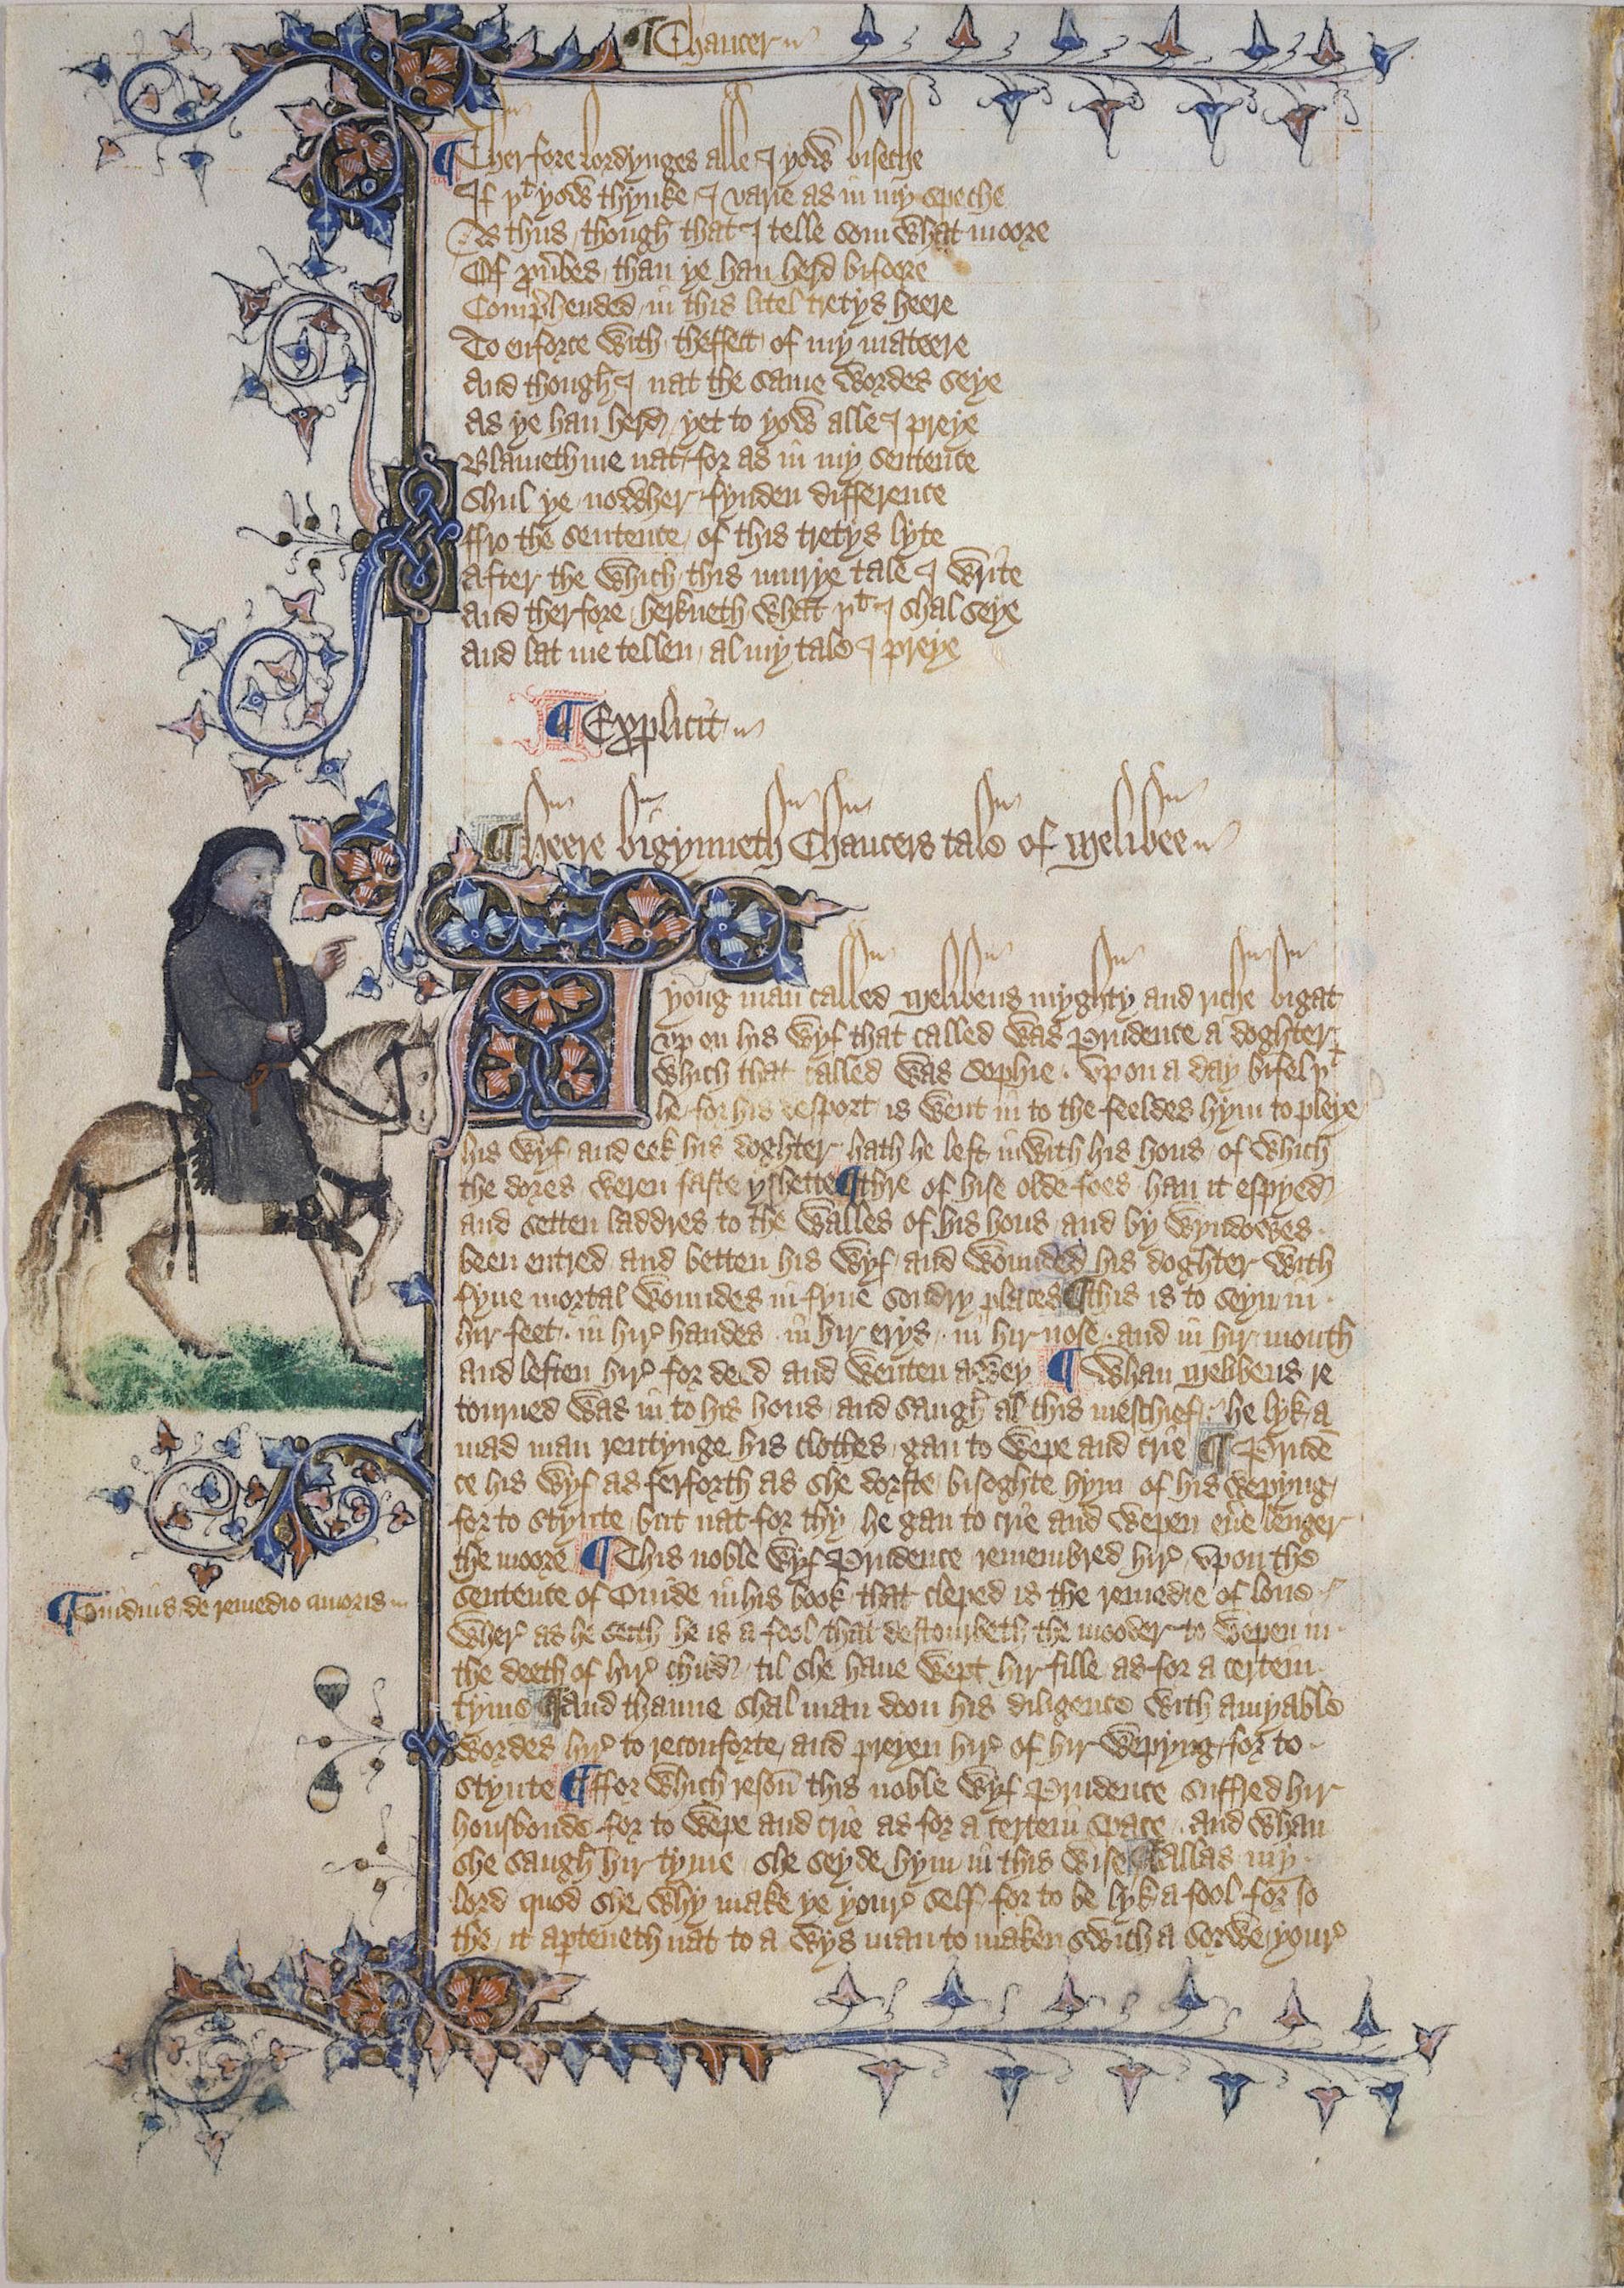 ¶ Chaucer
¶ Therfore lordynges alle I yow biseche
If þt yow thynke I varie as in my speche
As thus though that I telle som what moore
Of prouerbes than ye han herd bifoore
Comprehended in this litel tretys heere
To enforce with theffect of my mateere
And though I nat the same wordes seye
As ye han herd yet to yow alle I preye
Blameth me nat for as in my sentence
Shul ye nowher fynden difference
ffro the sentence of this tretys lyte
After the which this murye tale I write
And therfore herkneth what þt I shal seye
And lat me tellen al my tale I preye
¶ Explicit
¶ Heere bigynneth Chaucers tale of Melibee
A yong man called Melibeus myghty and riche bigat
vp on his wyf that called was Prudence a doghter
which that called was Sophie . vpon a day bifel þt
he for his desport is went in to the feeldes hym to pleye
his wyf and eek his doghter hath he left inwith his hous of which
the dores weren faste yshette ¶ thre of hise olde foes han it espyed
and setten laddres to the walles of his hous and by wyndowes
been entred and betten his wyf and wounded his doghter with
fyue mortal woundes in fyue sondry places ¶ this is to seyn in
hir feet . in hir handes . in hir erys . in hir nose . and in hir mouth
and leften hir for deed and wenten awey ¶ Whan Melibeus re
tourned was in to his hous and saugh al this meschief . he lyk a
mad man rentynge his clothes gan to wepe and crie ¶ Pruden
ce his wyf as ferforth as she dorste bisoghte hym of his wepyng
for to stynte but nat for thy he gan to crie and wepen euere lenger
the moore ¶ This noble wyf Prudence remembred hir vpon the
sentence of Ouide in his book that cleped is the remedie of loue
¶ Ouidius de remedio amoris
wher as he seith he is a fool that destourbeth the mooder to wepen in
the deeth of hir child til she haue wept hir fille as for a certein
tyme ¶ And thanne shal man doon his diligence with amyable
wordes hir to reconforte and preyen hir of hir wepyng for to
stynte ¶ ffor which reson this noble wyf Prudence suffred hir
housbonde for to wepe and crie as for a certein space . and whan
she saugh hir tyme she seyde hym in this wise ¶ Allas my
lord quod she why make ye your self for to be lyk a fool for so
the it aperteneth nat to a wys man to maken swich a sorwe your